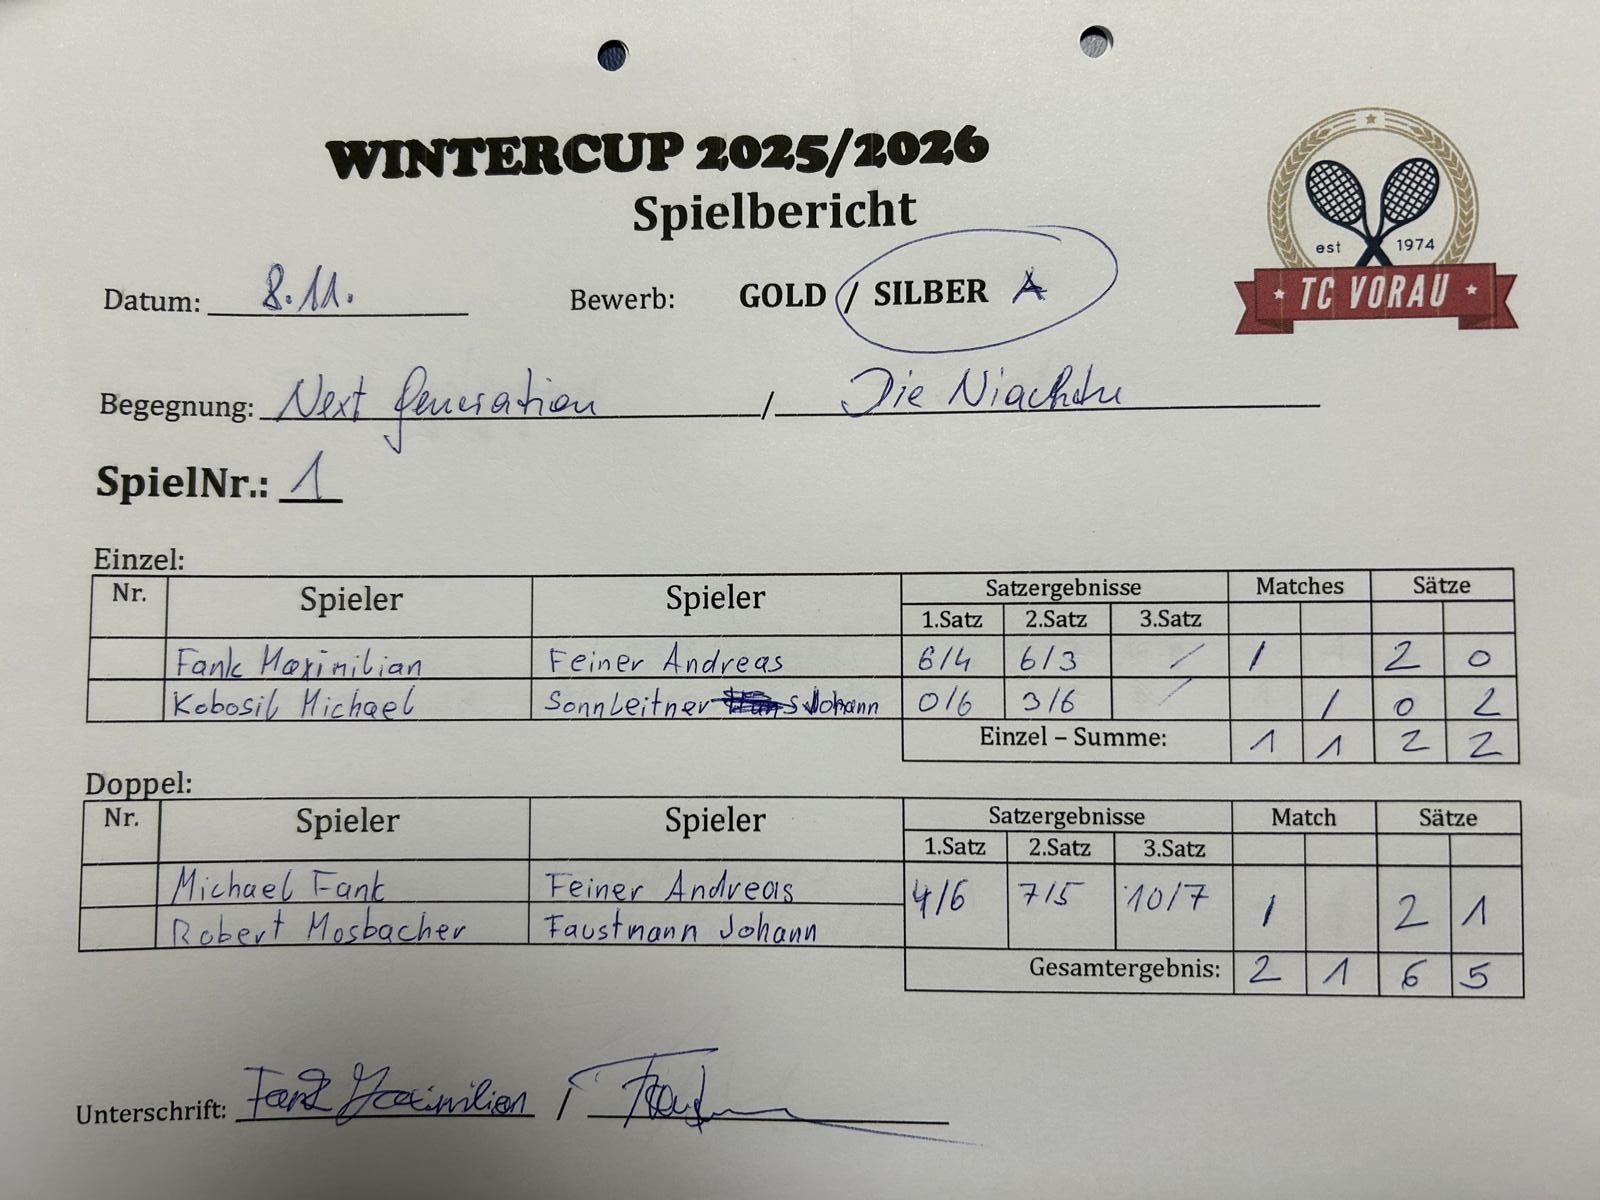 WINTERCUP 2025/2026
Spielbericht
est 1974
TC VORAU
Datum: 8.11. Bewerb: GOLD / SILBER A
Begegnung: Next Generation / Die
SpielNr.: 1
Einzel:
Nr. Spieler Spieler Satzergebnisse Matches Sätze
1.Satz 2.Satz 3.Satz
Fank Maximilian Feiner Andreas 6/4 6/3 / 1 2 0
Kobosil Michael Sonnleitner Johann 0/6 3/6 / 1 0 2
Einzel – Summe: 1 1 2 2
Doppel:
Nr. Spieler Spieler Satzergebnisse Match Sätze
1.Satz 2.Satz 3.Satz
Michael Fank Feiner Andreas 4/6 7/5 10/7 1 2 1
Robert Mosbacher Faustmann Johann
Gesamtergebnis: 2 1 6 5
Unterschrift: Fank Maximilian /